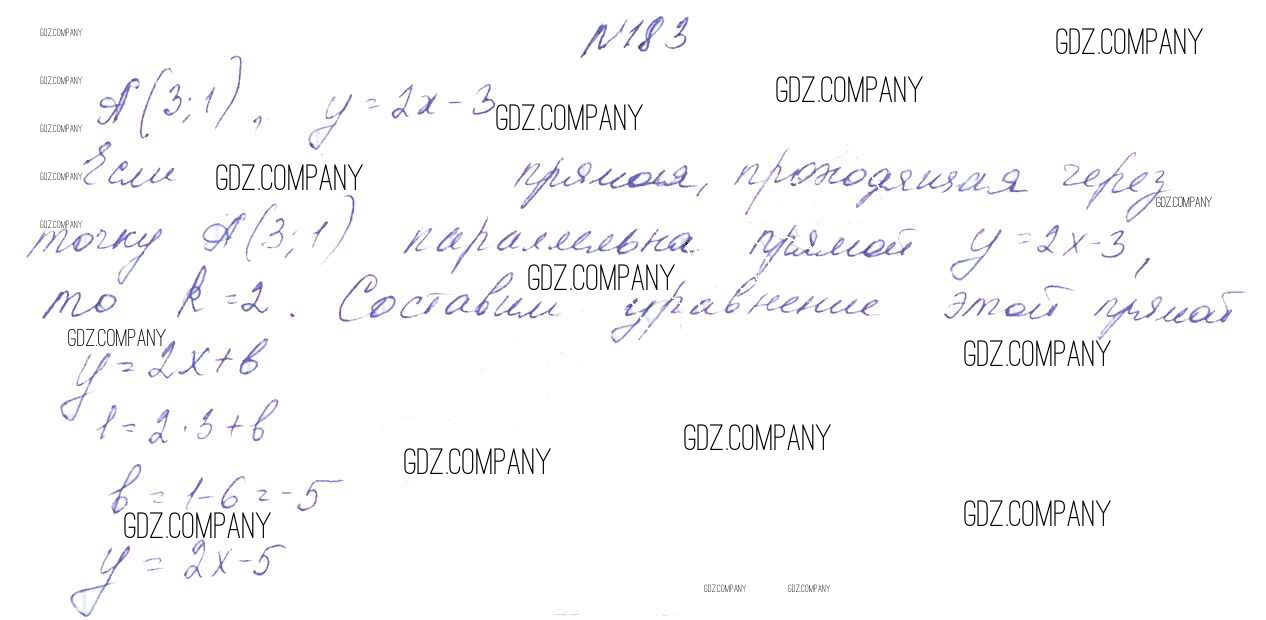 №183
GDZ.COMPANY
GDZ.COMPANY
GDZ.COMPANY
GDZ.COMPANY
A(3;1), y=2x-3
GDZ.COMPANY
GDZ.COMPANY
Если прямая, проходящая через
GDZ.COMPANY
GDZ.COMPANY
GDZ.COMPANY
GDZ.COMPANY
точку A(3;1) параллельна прямой y=2x-3,
GDZ.COMPANY
то k=2. Составим уравнение этой прямой
GDZ.COMPANY
GDZ.COMPANY
y=2x+b
1=2·3+b
GDZ.COMPANY
GDZ.COMPANY
b=1-6=-5
GDZ.COMPANY
GDZ.COMPANY
y=2x-5
GDZ.COMPANY
GDZ.COMPANY